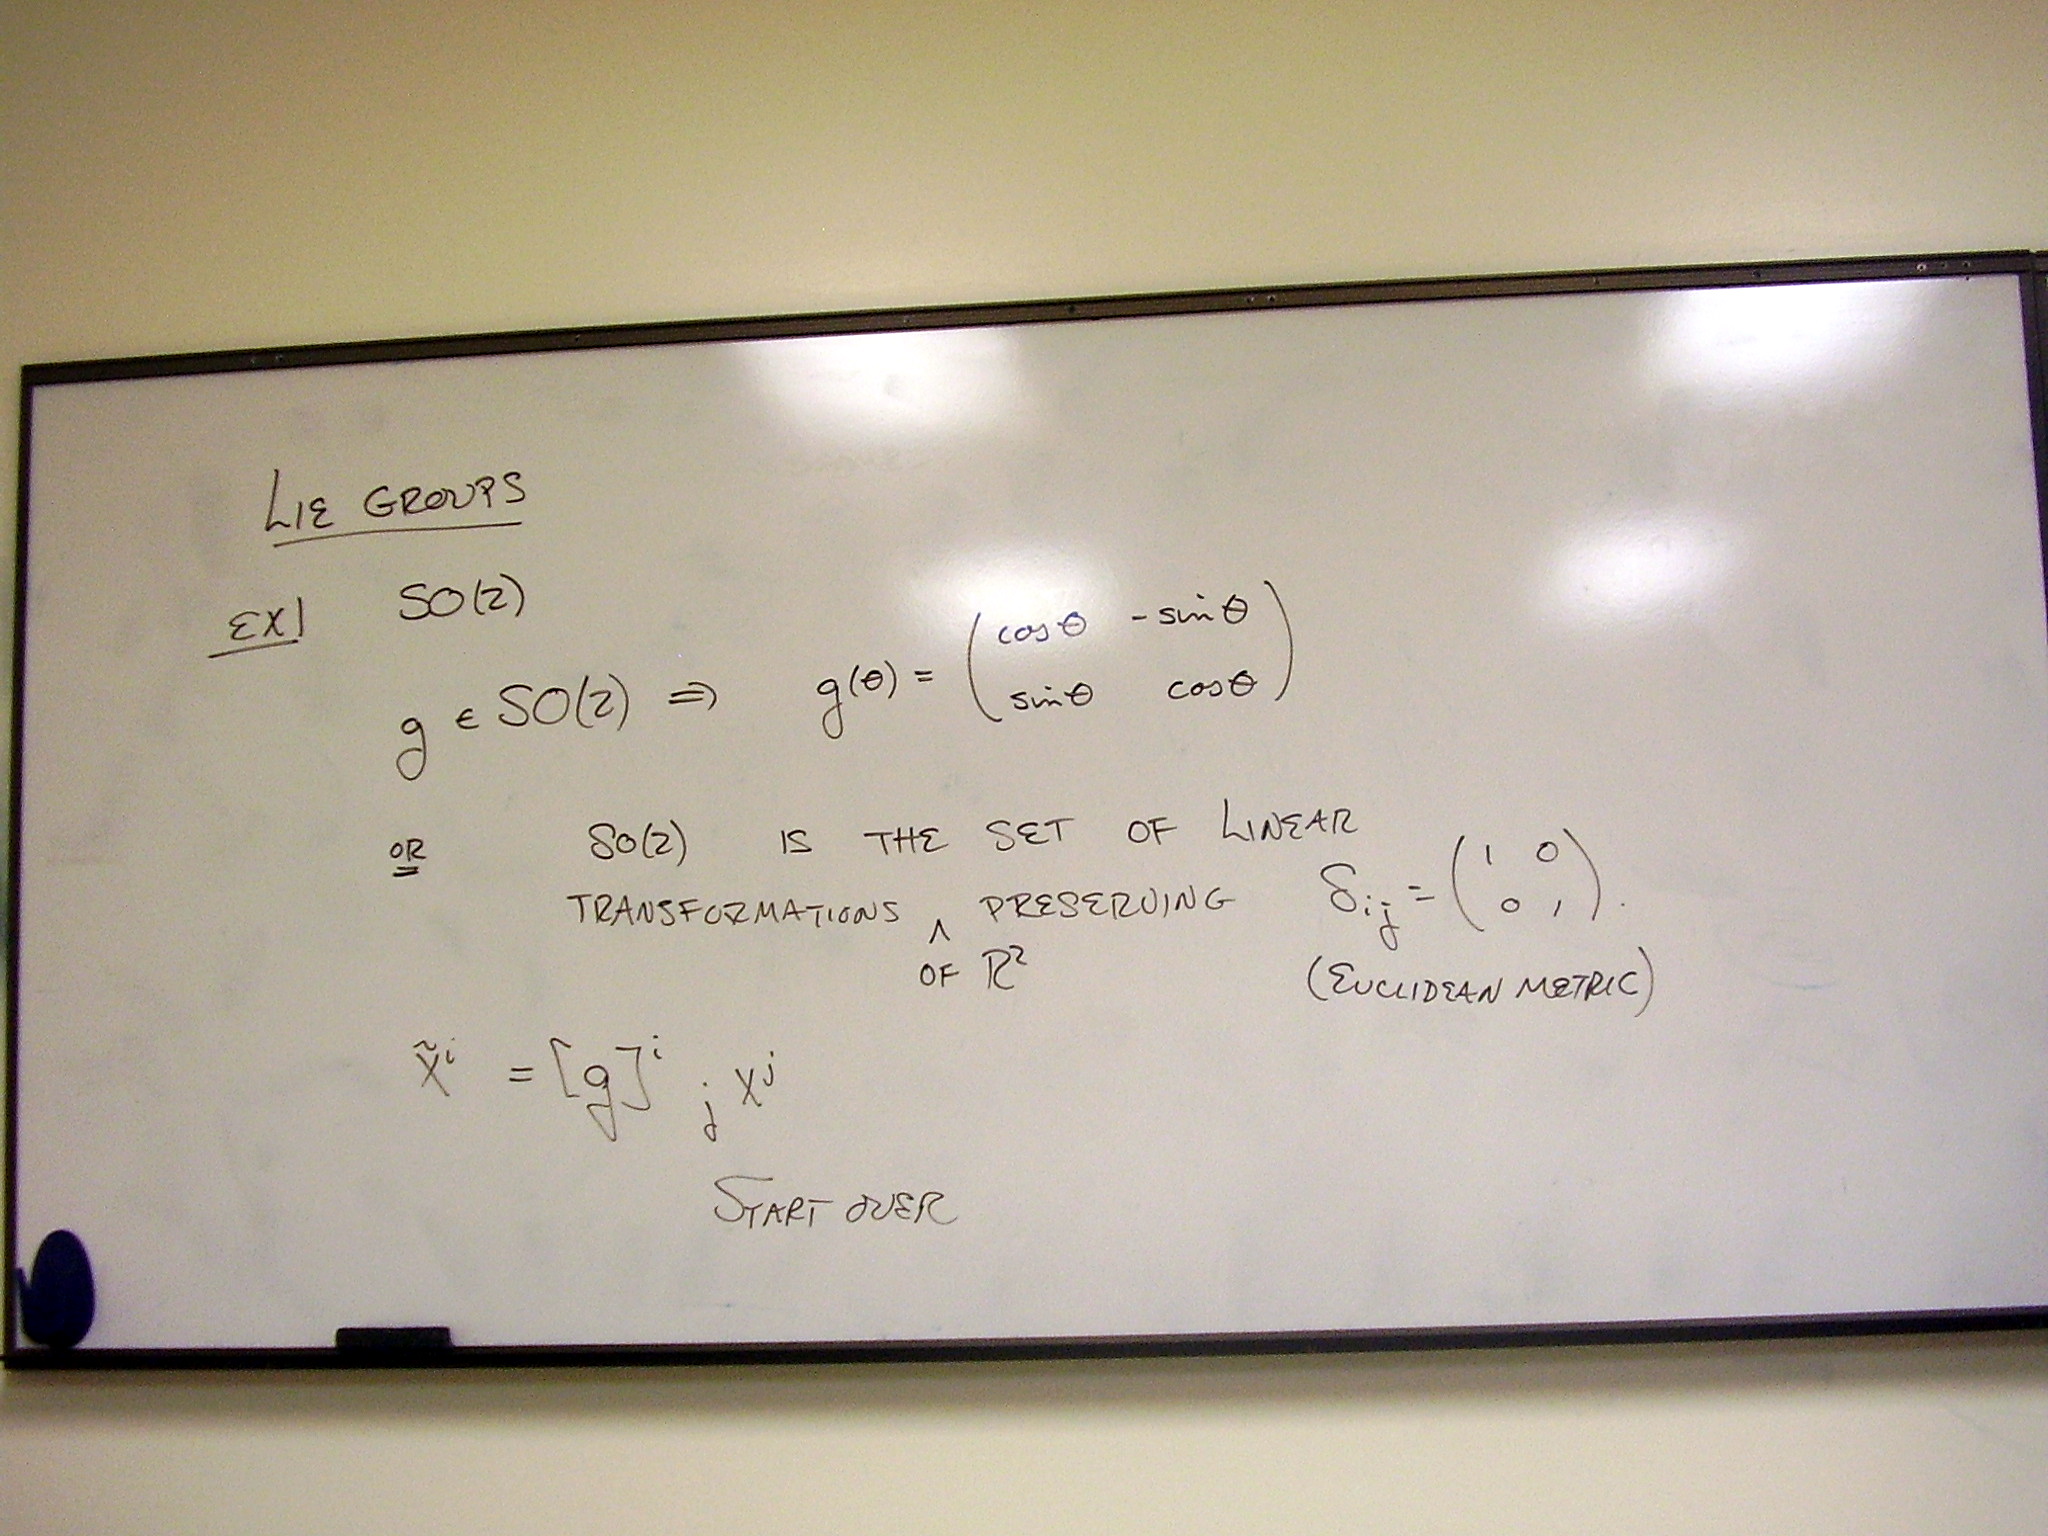 LIE GROUPS
EX) SO(2)
g ∈ SO(2) ⇒ g(θ) = ( cosθ -sinθ
sinθ cosθ )
OR SO(2) IS THE SET OF LINEAR
TRANSFORMATIONS ^ PRESERVING δij = ( 1 0
0 1 ).
OF R²
(EUCLIDEAN METRIC)
x̃ⁱ = [g]ⁱ ⱼ xʲ
START OVER